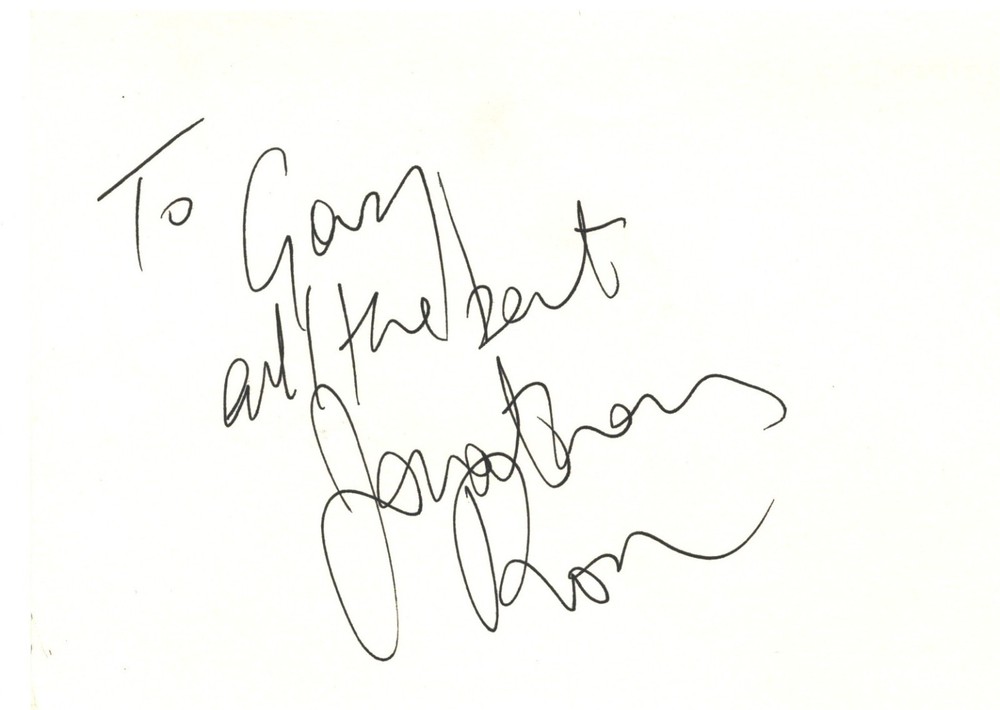 To Gary
all the best
Jonathan
Ross